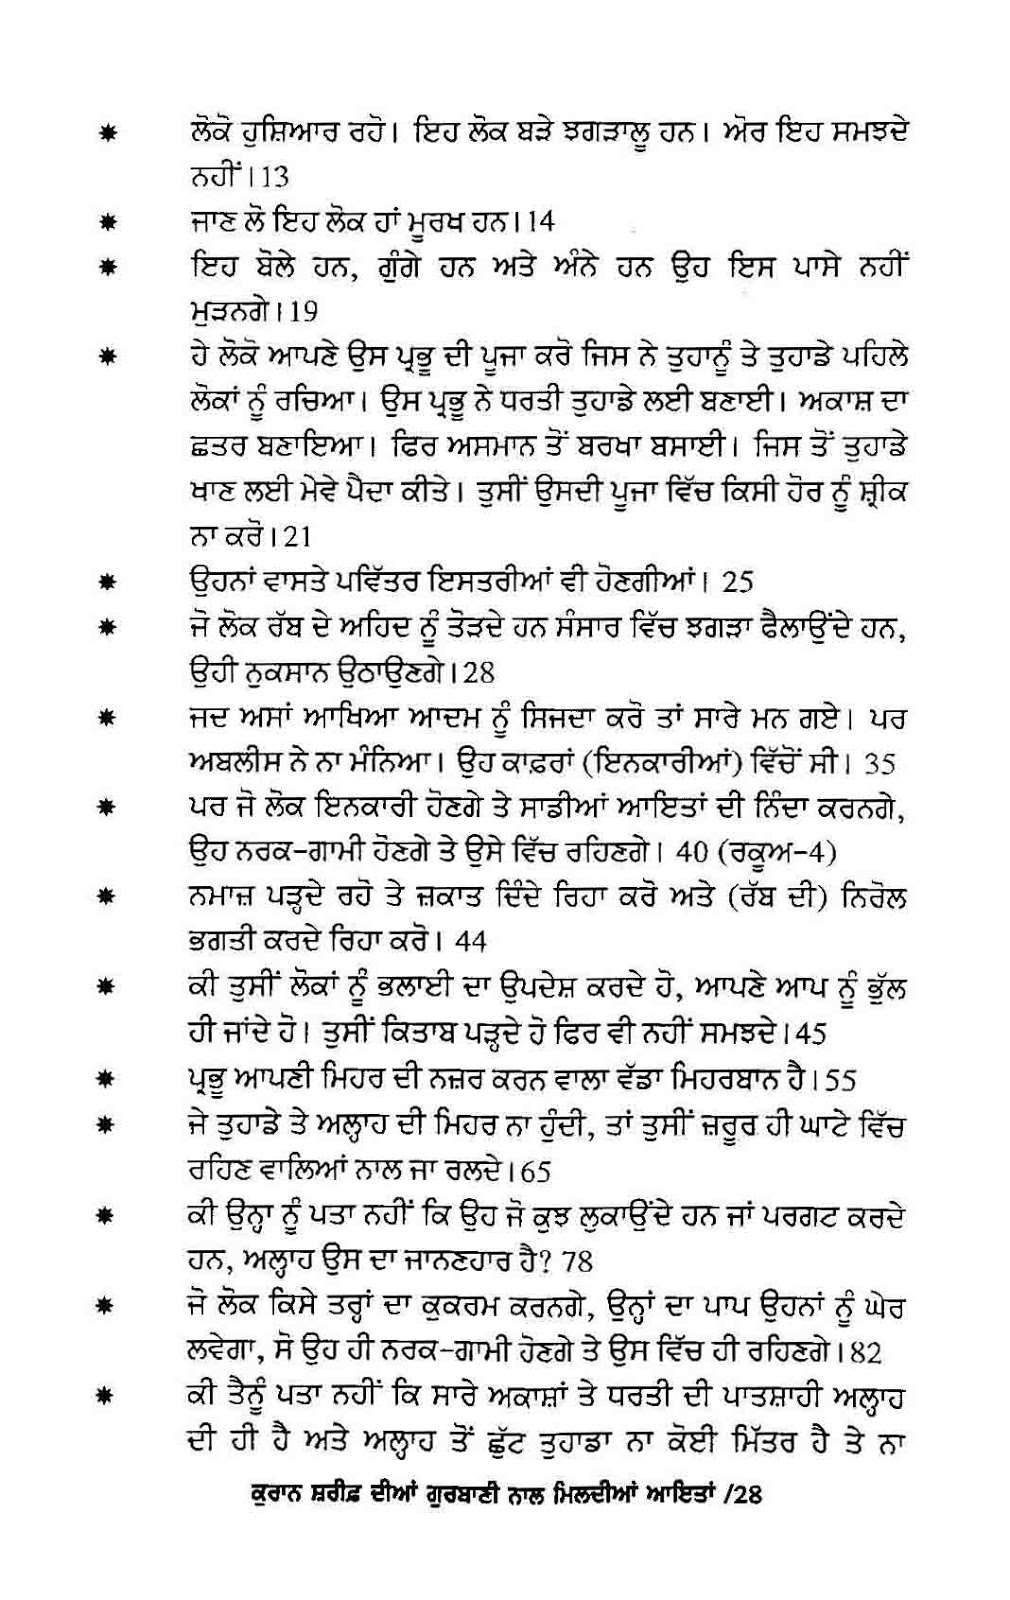 ✷ ਲੋਕੋ ਹੁਸ਼ਿਆਰ ਰਹੋ। ਇਹ ਲੋਕ ਬੜੇ ਝਗੜਾਲੂ ਹਨ। ਅੋਰ ਇਹ ਸਮਝਦੇ
ਨਹੀਂ।13
✷ ਜਾਣ ਲੋ ਇਹ ਲੋਕ ਹਾਂ ਮੂਰਖ ਹਨ।14
✷ ਇਹ ਬੋਲੇ ਹਨ, ਗੁੰਗੇ ਹਨ ਅਤੇ ਅੰਨੇ ਹਨ ਉਹ ਇਸ ਪਾਸੇ ਨਹੀਂ
ਮੁੜਨਗੇ।19
✷ ਹੇ ਲੋਕੋ ਆਪਣੇ ਉਸ ਪ੍ਰਭੂ ਦੀ ਪੂਜਾ ਕਰੋ ਜਿਸ ਨੇ ਤੁਹਾਨੂੰ ਤੇ ਤੁਹਾਡੇ ਪਹਿਲੇ
ਲੋਕਾਂ ਨੂੰ ਰਚਿਆ। ਉਸ ਪ੍ਰਭੂ ਨੇ ਧਰਤੀ ਤੁਹਾਡੇ ਲਈ ਬਣਾਈ। ਅਕਾਸ਼ ਦਾ
ਛਤਰ ਬਣਾਇਆ। ਫਿਰ ਅਸਮਾਨ ਤੋਂ ਬਰਖਾ ਬਸਾਈ। ਜਿਸ ਤੋਂ ਤੁਹਾਡੇ
ਖਾਣ ਲਈ ਮੇਵੇ ਪੈਦਾ ਕੀਤੇ। ਤੁਸੀਂ ਉਸਦੀ ਪੂਜਾ ਵਿੱਚ ਕਿਸੀ ਹੋਰ ਨੂੰ ਸ਼੍ਰੀਕ
ਨਾ ਕਰੋ।21
✷ ਉਹਨਾਂ ਵਾਸਤੇ ਪਵਿੱਤਰ ਇਸਤਰੀਆਂ ਵੀ ਹੋਣਗੀਆਂ। 25
✷ ਜੋ ਲੋਕ ਰੱਬ ਦੇ ਅਹਿਦ ਨੂੰ ਤੋੜਦੇ ਹਨ ਸੰਸਾਰ ਵਿੱਚ ਝਗੜਾ ਫੈਲਾਉਂਦੇ ਹਨ,
ਉਹੀ ਨੁਕਸਾਨ ਉਠਾਉਣਗੇ।28
✷ ਜਦ ਅਸਾਂ ਆਖਿਆ ਆਦਮ ਨੂੰ ਸਿਜਦਾ ਕਰੋ ਤਾਂ ਸਾਰੇ ਮਨ ਗਏ। ਪਰ
ਅਬਲੀਸ ਨੇ ਨਾ ਮੰਨਿਆ। ਉਹ ਕਾਫ਼ਰਾਂ (ਇਨਕਾਰੀਆਂ) ਵਿੱਚੋਂ ਸੀ। 35
✷ ਪਰ ਜੋ ਲੋਕ ਇਨਕਾਰੀ ਹੋਣਗੇ ਤੇ ਸਾਡੀਆਂ ਆਇਤਾਂ ਦੀ ਨਿੰਦਾ ਕਰਨਗੇ,
ਉਹ ਨਰਕ-ਗਾਮੀ ਹੋਣਗੇ ਤੇ ਉਸੇ ਵਿੱਚ ਰਹਿਣਗੇ। 40 (ਰਕੂਅ-4)
✷ ਨਮਾਜ਼ ਪੜ੍ਹਦੇ ਰਹੋ ਤੇ ਜ਼ਕਾਤ ਦਿੰਦੇ ਰਿਹਾ ਕਰੋ ਅਤੇ (ਰੱਬ ਦੀ) ਨਿਰੋਲ
ਭਗਤੀ ਕਰਦੇ ਰਿਹਾ ਕਰੋ। 44
✷ ਕੀ ਤੁਸੀਂ ਲੋਕਾਂ ਨੂੰ ਭਲਾਈ ਦਾ ਉਪਦੇਸ਼ ਕਰਦੇ ਹੋ, ਆਪਣੇ ਆਪ ਨੂੰ ਭੁੱਲ
ਹੀ ਜਾਂਦੇ ਹੋ। ਤੁਸੀਂ ਕਿਤਾਬ ਪੜ੍ਹਦੇ ਹੋ ਫਿਰ ਵੀ ਨਹੀਂ ਸਮਝਦੇ।45
✷ ਪ੍ਰਭੂ ਆਪਣੀ ਮਿਹਰ ਦੀ ਨਜ਼ਰ ਕਰਨ ਵਾਲਾ ਵੱਡਾ ਮਿਹਰਬਾਨ ਹੈ।55
✷ ਜੇ ਤੁਹਾਡੇ ਤੇ ਅਲ੍ਹਾਹ ਦੀ ਮਿਹਰ ਨਾ ਹੁੰਦੀ, ਤਾਂ ਤੁਸੀਂ ਜ਼ਰੂਰ ਹੀ ਘਾਟੇ ਵਿੱਚ
ਰਹਿਣ ਵਾਲਿਆਂ ਨਾਲ ਜਾ ਰਲਦੇ।65
✷ ਕੀ ਉਨ੍ਹਾ ਨੂੰ ਪਤਾ ਨਹੀਂ ਕਿ ਉਹ ਜੋ ਕੁਝ ਲੁਕਾਉਂਦੇ ਹਨ ਜਾਂ ਪਰਗਟ ਕਰਦੇ
ਹਨ, ਅਲ੍ਹਾਹ ਉਸ ਦਾ ਜਾਨਣਹਾਰ ਹੈ? 78
✷ ਜੋ ਲੋਕ ਕਿਸੇ ਤਰ੍ਹਾਂ ਦਾ ਕੁਕਰਮ ਕਰਨਗੇ, ਉਨ੍ਹਾਂ ਦਾ ਪਾਪ ਉਹਨਾਂ ਨੂੰ ਘੇਰ
ਲਵੇਗਾ, ਸੋ ਉਹ ਹੀ ਨਰਕ-ਗਾਮੀ ਹੋਣਗੇ ਤੇ ਉਸ ਵਿੱਚ ਹੀ ਰਹਿਣਗੇ।82
✷ ਕੀ ਤੈਨੂੰ ਪਤਾ ਨਹੀਂ ਕਿ ਸਾਰੇ ਅਕਾਸ਼ਾਂ ਤੇ ਧਰਤੀ ਦੀ ਪਾਤਸ਼ਾਹੀ ਅਲ੍ਹਾਹ
ਦੀ ਹੀ ਹੈ ਅਤੇ ਅਲ੍ਹਾਹ ਤੋਂ ਛੁੱਟ ਤੁਹਾਡਾ ਨਾ ਕੋਈ ਮਿੱਤਰ ਹੈ ਤੇ ਨਾ
ਕੁਰਾਨ ਸ਼ਰੀਫ਼ ਦੀਆਂ ਗੁਰਬਾਣੀ ਨਾਲ ਮਿਲਦੀਆਂ ਆਇਤਾਂ /28